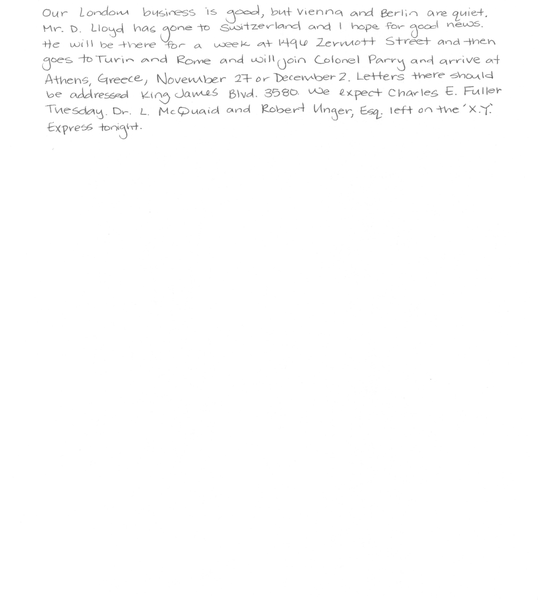 Our London business is good, but Vienna and Berlin are quiet.
Mr. D. Lloyd has gone to Switzerland and I hope for good news.
He will be there for a week at 1496 Zermott Street and then
goes to Turin and Rome and will join Colonel Parry and arrive at
Athens, Greece, November 27 or December 2. Letters there should
be addressed King James Blvd. 3580. We expect Charles E. Fuller
Tuesday. Dr. L. McQuaid and Robert Unger, Esq. left on the 'X.Y.'
Express tonight.